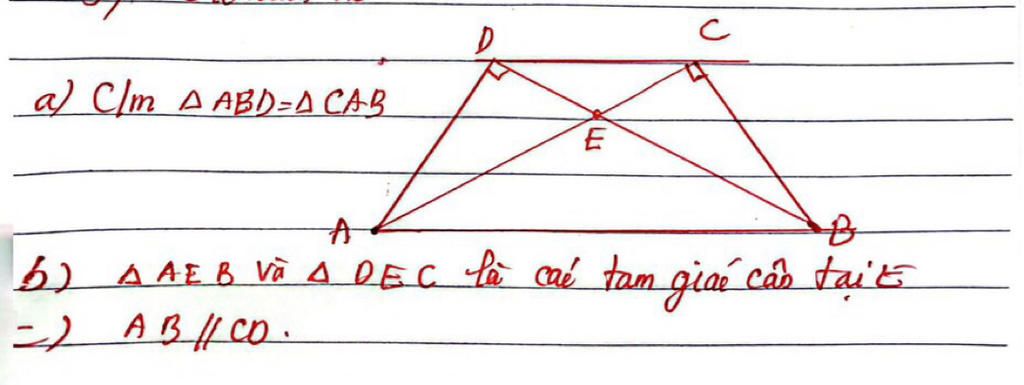 D
C
a) C/m △ ABD=△ CAB
E
A
B
b) △ AEB và △ DEC là các tam giác cân tại E
=) AB // CD.